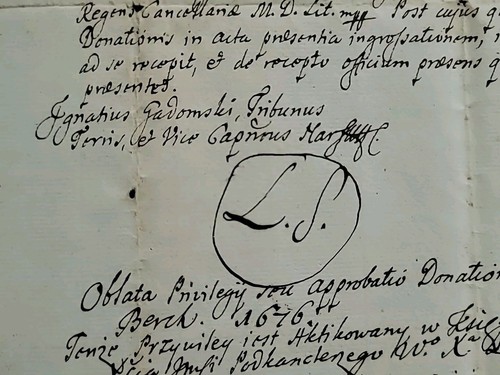 Regens Cancellariæ M. D. Lit. mpp Post cujus q
Donationis in acta præsentia ingrossationem,
ad se recepit, et de recepto officium præsens q
præsentet.
Ignatius Gadomski, Tribunus
et Vice Capneus
L. S.
Oblata Privilegij seu approbatio Donation
Berck. 1676.
Tenże Przywiley iest Aktikowany w Xię
Podkanclerzego W.º X.ª